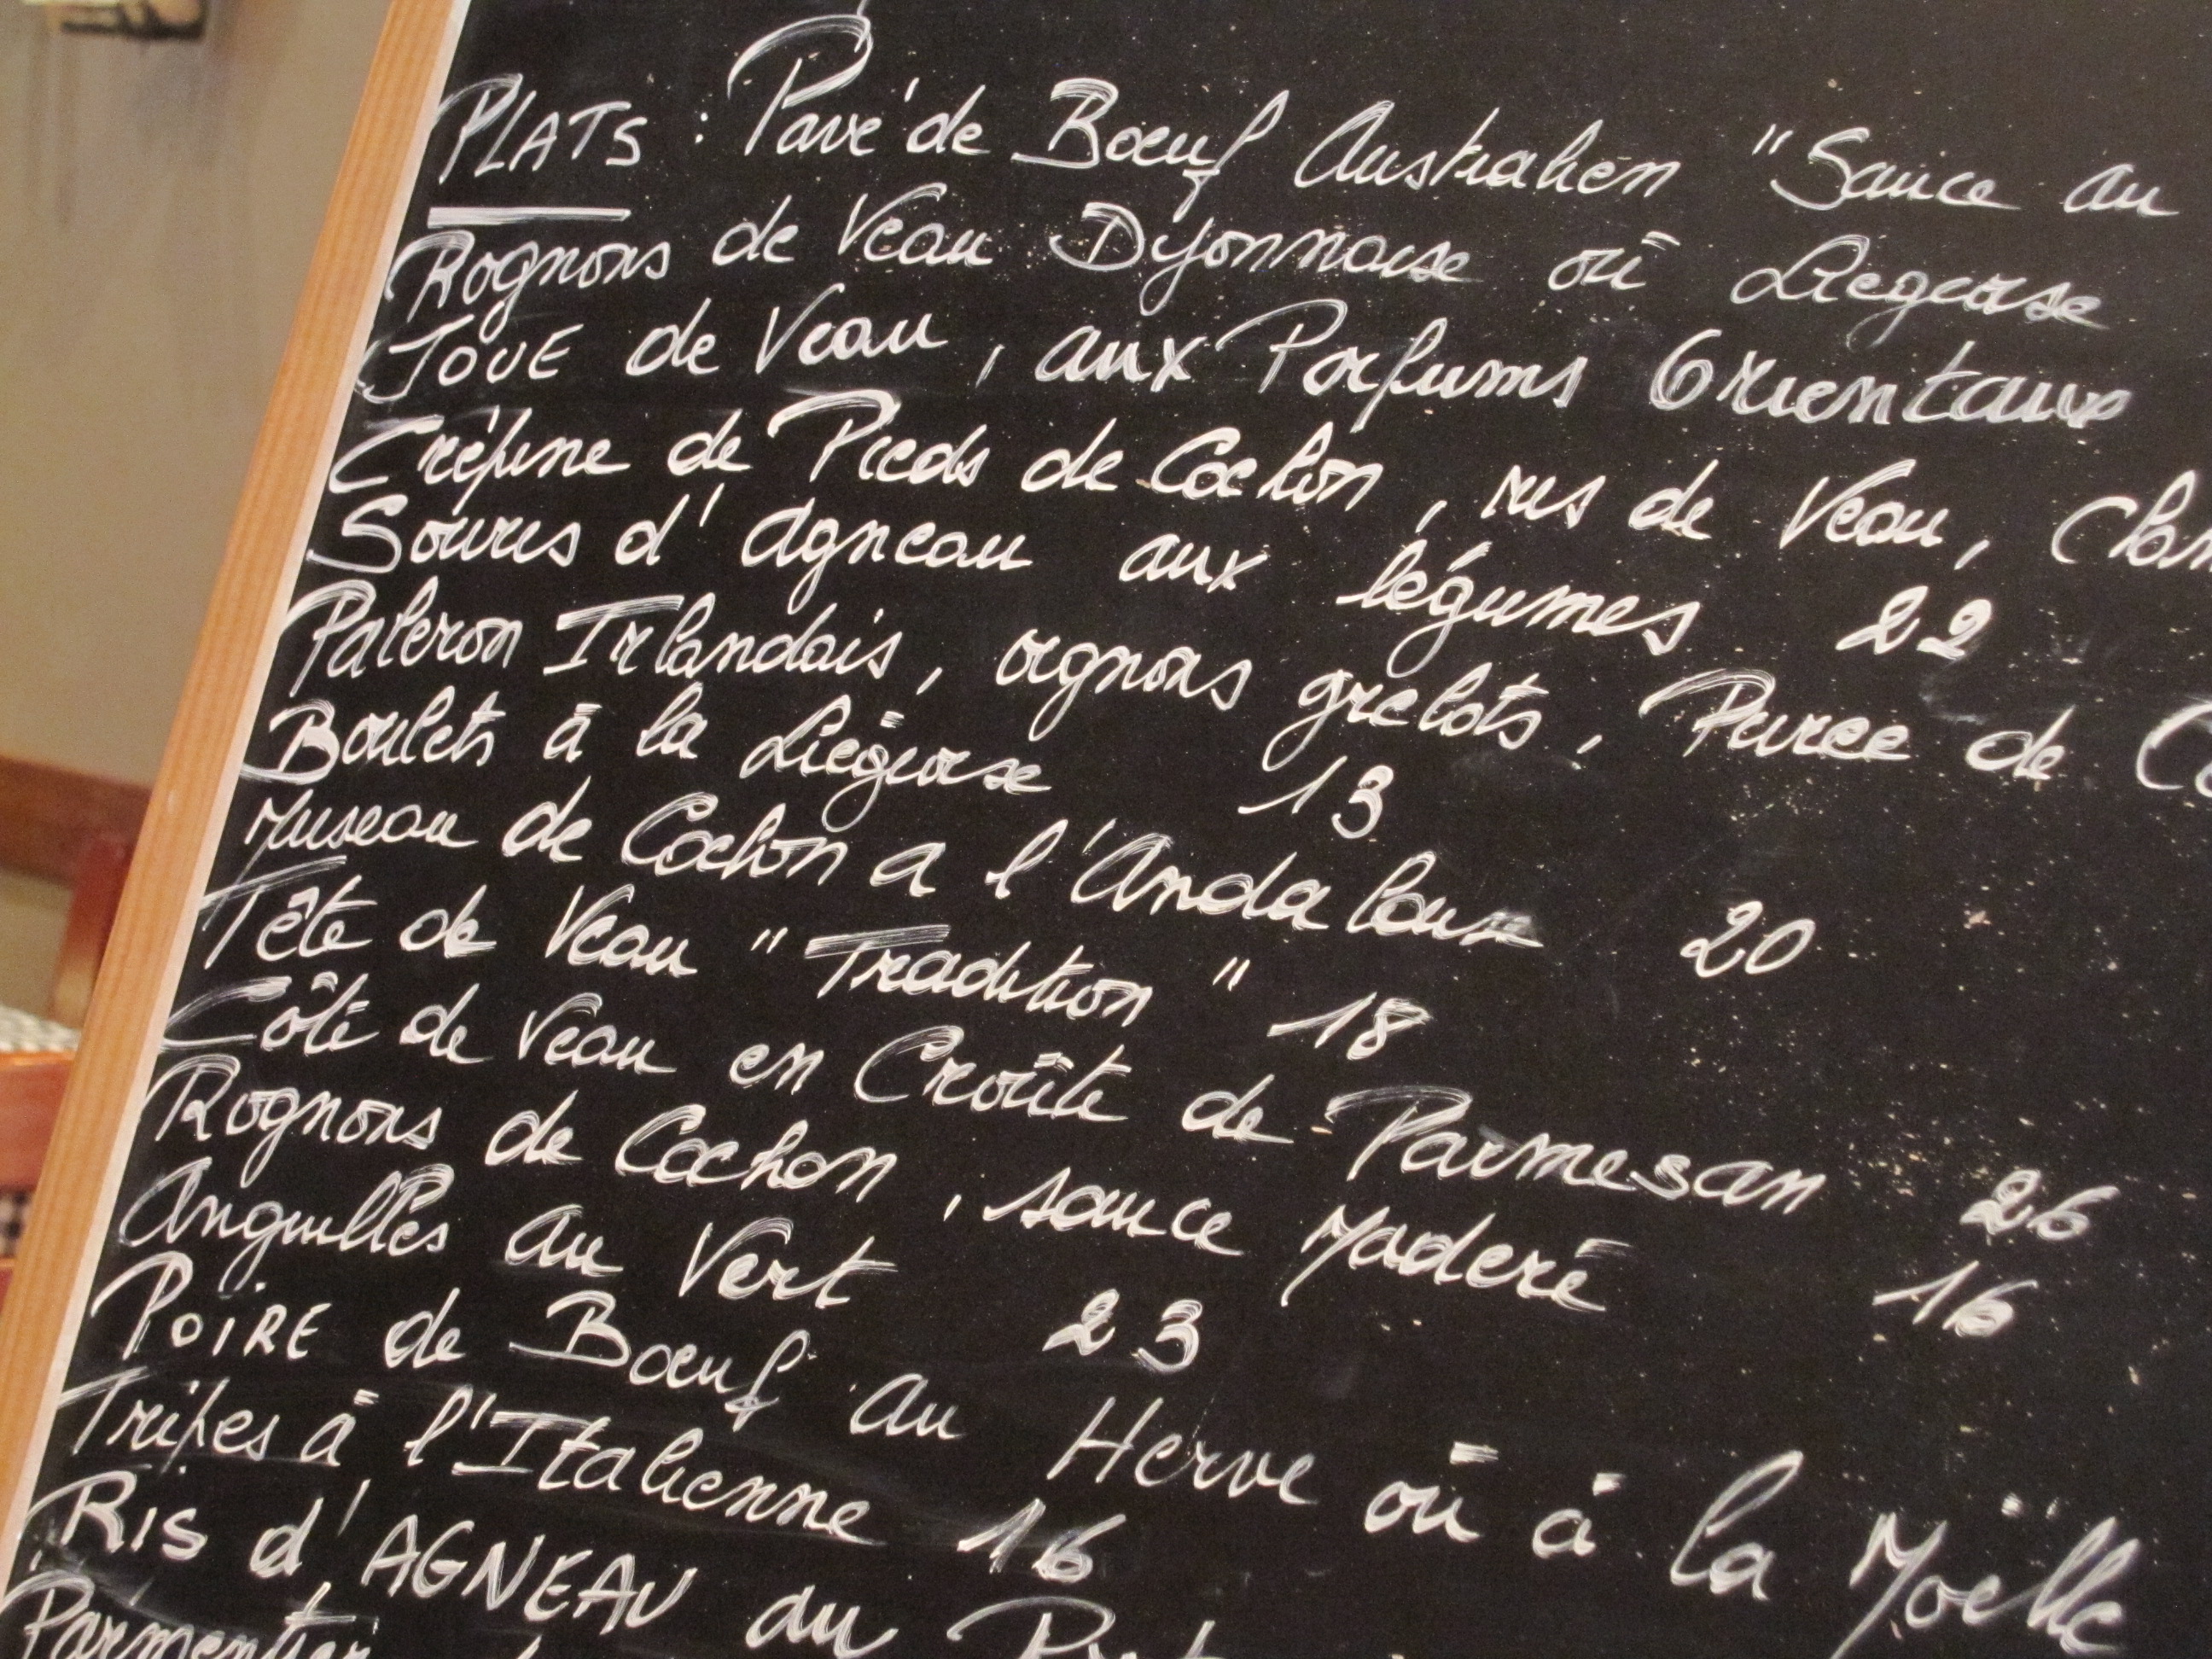 PLATS : Pavé de Bœuf Australien "Sauce au
Rognons de Veau Dijonnaise ou Liégeoise
JOUE de Veau, aux Parfums Orientaux
Crépine de Pieds de Cochon, ris de Veau, Cham
Souris d'agneau aux légumes 22
Paleron Irlandais, oignons grelots, Purée de
Boulets à la Liégeoise 13
Museau de Cochon a l'Andalouse 20
Tête de Veau "Tradition" 18
Côte de Veau en Croûte de Parmesan 26
Rognons de Cochon, sauce Maderé 16
Anguilles au Vert 23
POIRE de Bœuf au Herve où à la Moëlle
Tripes à l'Italienne 16
RIS d'AGNEAU au
Parmentier